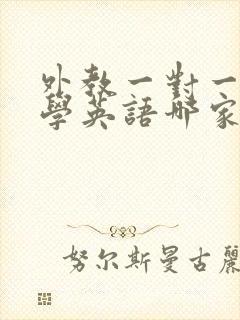 外教一對一
學英語哪家
努尔斯曼古麗